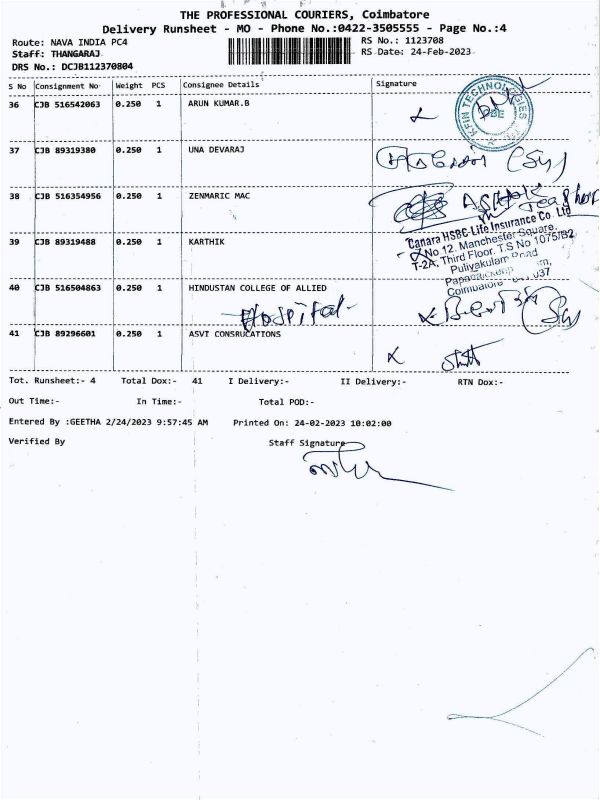 THE PROFESSIONAL COURIERS, Coimbatore
Delivery Runsheet - MO - Phone No.:0422-3505555 - Page No.:4
Route: NAVA INDIA PC4
RS No.: 1123708
Staff: THANGARAJ
RS Date: 24-Feb-2023
DRS No.: DCJB112370804
S No Consignment No Weight PCS Consignee Details Signature
36 CJB 516542063 0.250 1 ARUN KUMAR.B
KFIN TECHNOLOGIES
37 CJB 89319380 0.250 1 UNA DEVARAJ
38 CJB 516354956 0.250 1 ZENMARIC MAC
Canara HSBC Life Insurance Co. Ltd
No 12. Manchester Square,
39 CJB 89319488 0.250 1 KARTHIK
T-2A, Third Floor, T.S No 1075/B2
Puliyakulam Road
Coimbatore
40 CJB 516504863 0.250 1 HINDUSTAN COLLEGE OF ALLIED
Hospital-
41 CJB 89296601 0.250 1 ASVI CONSRUCATIONS
Tot. Runsheet:- 4 Total Dox:- 41 I Delivery:- II Delivery:- RTN Dox:-
Out Time:- In Time:- Total POD:-
Entered By :GEETHA 2/24/2023 9:57:45 AM Printed On: 24-02-2023 10:02:00
Verified By Staff Signature